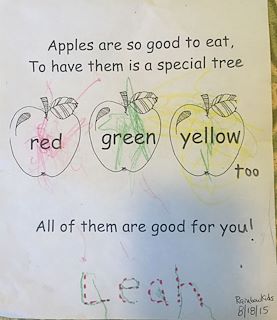 Apples are so good to eat,
To have them is a special tree
red green yellow
too
All of them are good for you!
Leah
RainbowKids
8/18/15